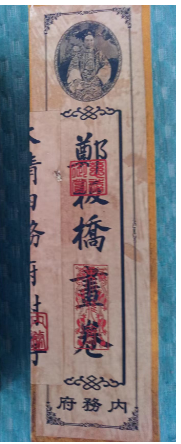 鄭板橋畫卷
大清內務府封
內務府